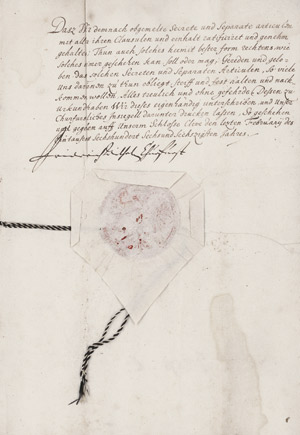 Dasz Wir demnach obgemelte Secrete und Separate articulen
mit allen ihren Clausulen und einhalt ratificiret und genehm
gehalten; Thun auch solches hiemit bester form rechtens, wie
solches immer geschehen kan, soll oder mag, Gereden und gelo-
ben das solchen Secreten und Separaten Articulen, So viele
Uns daran zu thun obliegt, steiff und fest halten und nach-
kommen wollen. Alles treulich und ohne gefehrde; Dessen zu
uhrkundt haben Wir dieses eigenhändig unterschrieben, und Unser
Churfürstliches Insiegell darunter drucken lassen, So geschehen
und gegeben auff Unserem Schlosse Cleve den lezten February des
Eintausent Sechshundert Sechsundsechszigsten Jahres.
Friderich Wilhelm Churfürst